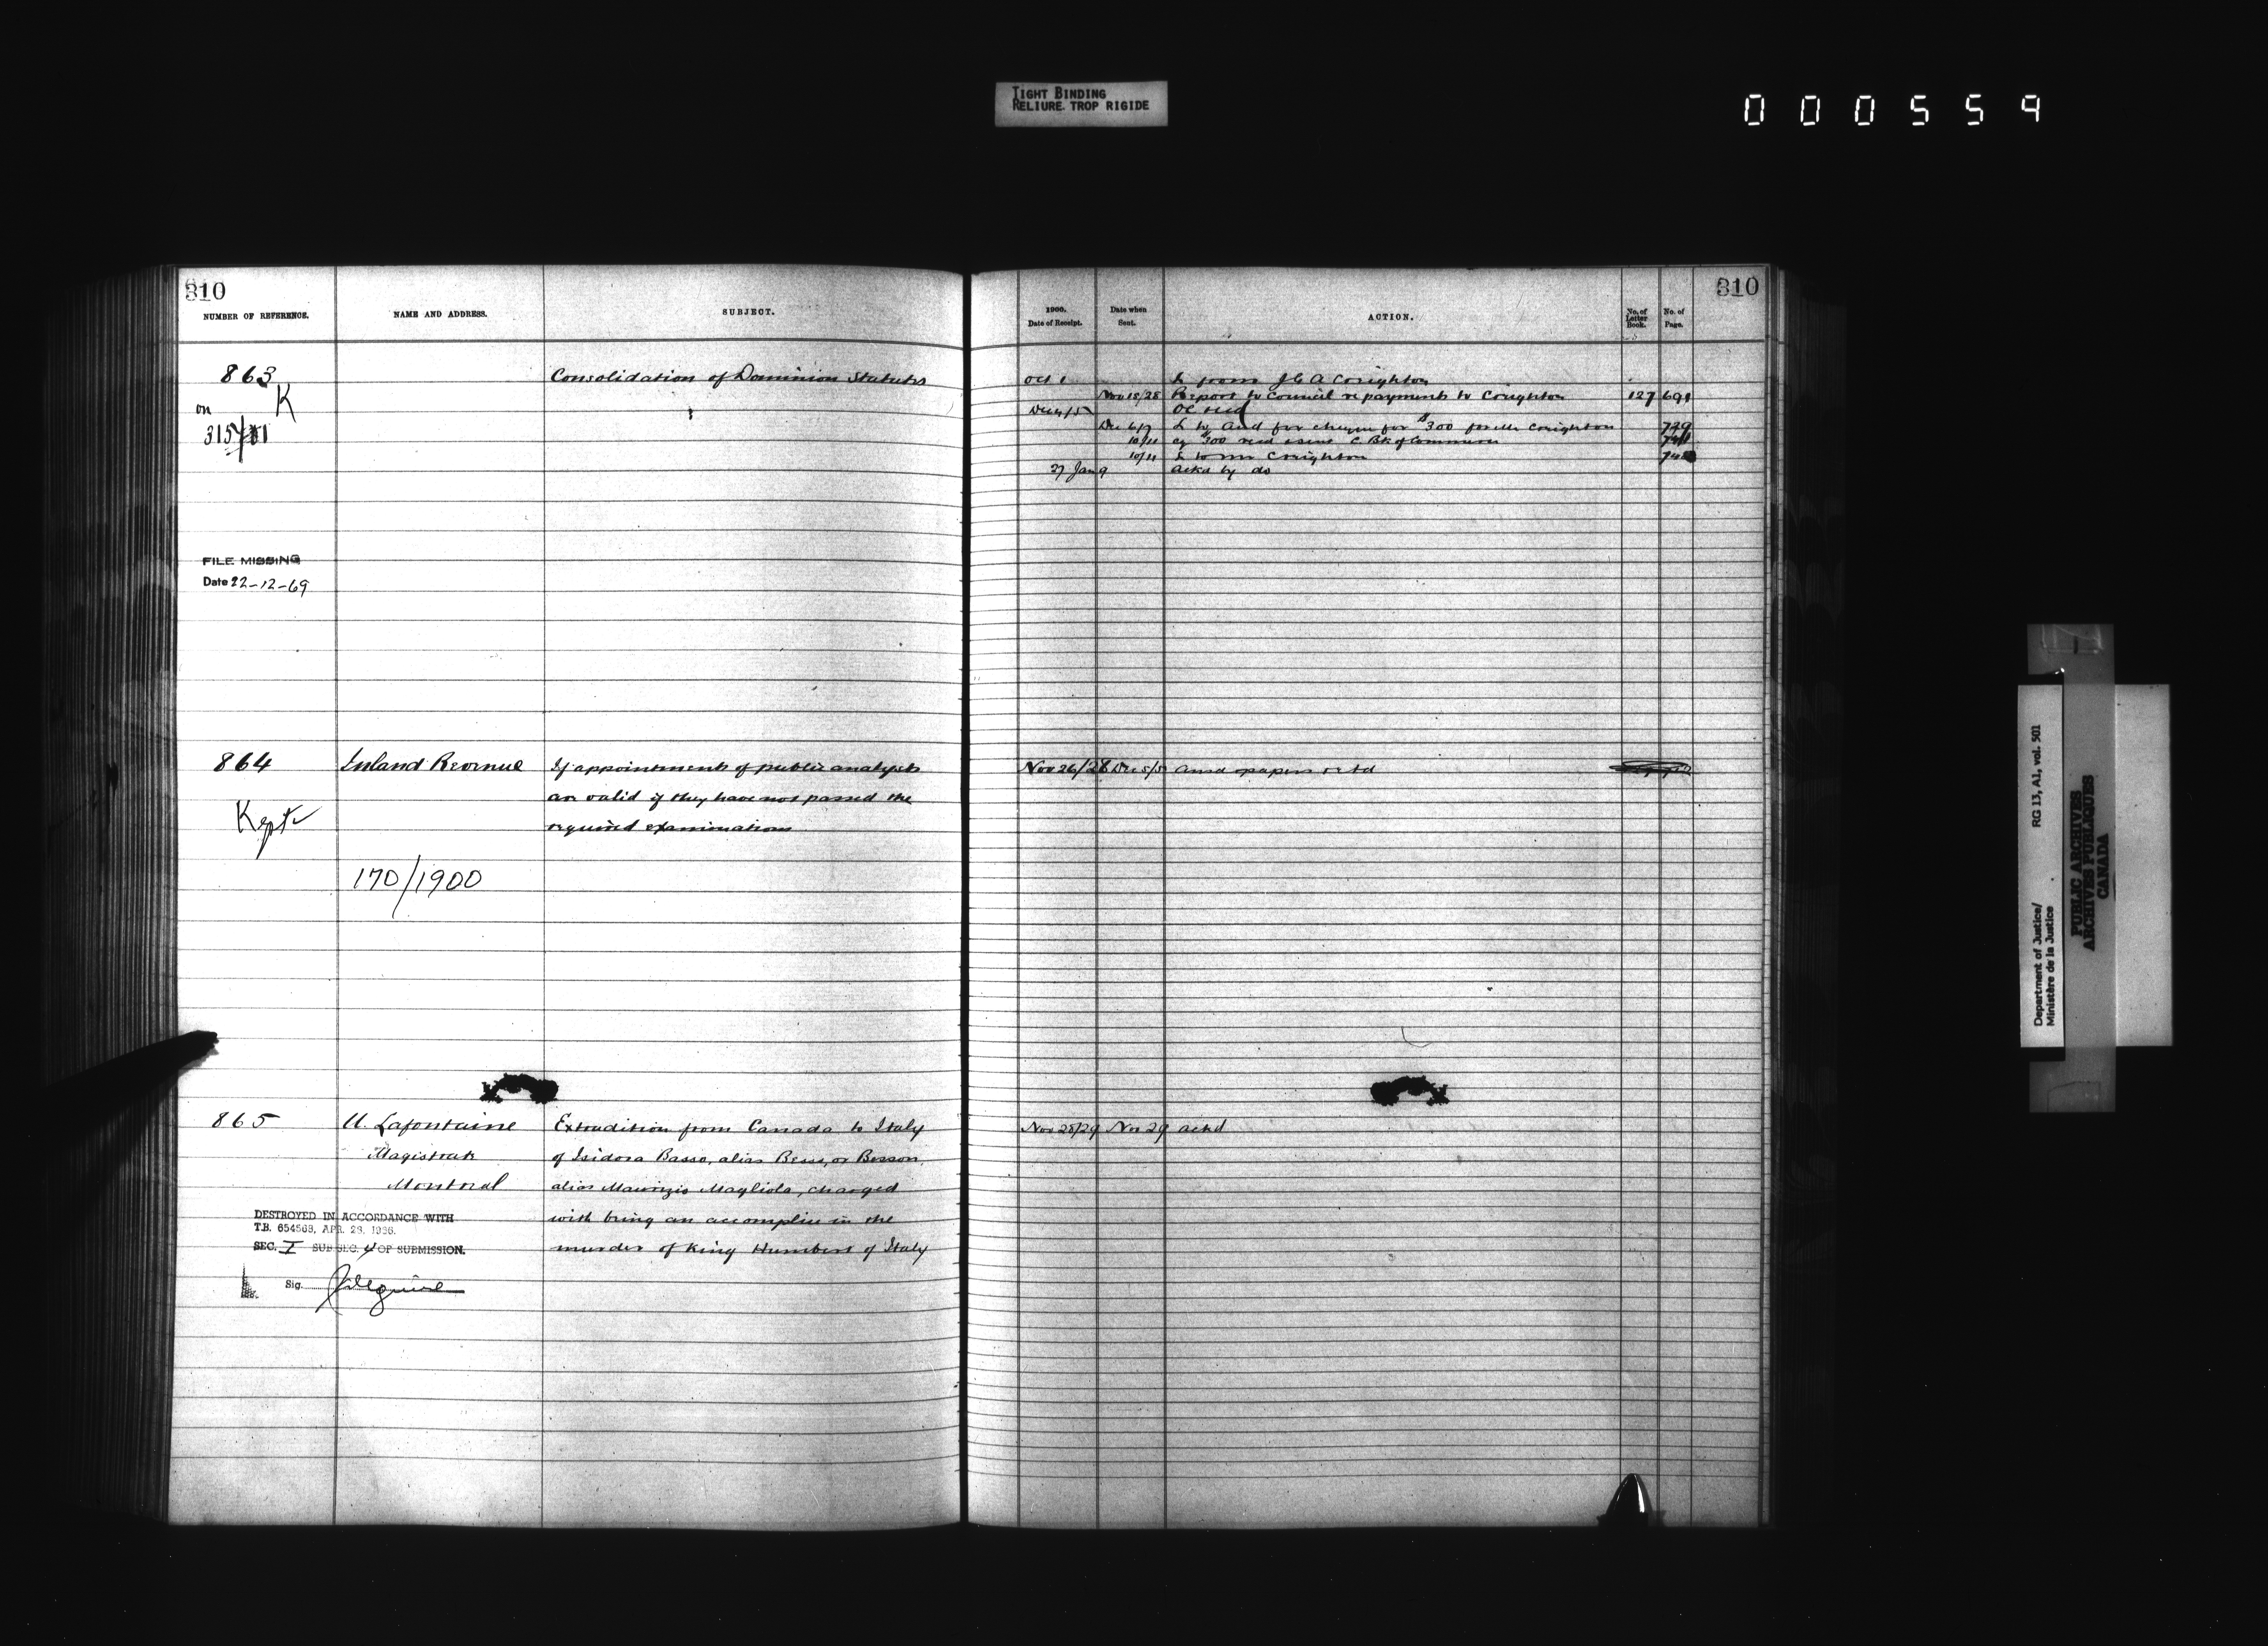 TIGHT BINDING
RELIURE TROP RIGIDE
000559
310
NUMBER OF REFERENCE.
NAME AND ADDRESS.
SUBJECT.
863
K
on
Consolidation of Dominion Statutes
FILE MISSING
Date 22-12-69
864
Inland Revenue
If appointments of public analysts
are valid if they have not passed the
required examinations
Kept
170/1900
865
U. Lafontaine
Magistrate
Montreal
Extradition from Canada to Italy
of Isidora Basso, alias Besse, or Besson,
alias Maurizio Magliola, charged
with being an accomplice in the
murder of King Humbert of Italy
DESTROYED IN ACCORDANCE WITH
T.B. 654563, APR. 28, 1966.
SEC. I SUB SEC. 4 OF SUBMISSION.
Sig.
310
1900.
Date of Receipt.
Date when
Sent.
ACTION.
No. of
Letter
Book.
No. of
Page.
Oct 1 L from J G A Creighton
Nov 15/28 Report to Council re payments to Creighton 127 691
Dec 4/5 OC recd
Dec 6/7 L to Aud for cheque for $300 for Mr Creighton 739
10/11 cq $300 recd C. Bk of Commerce
10/11 L to Mr Creighton
27 Jan 9 ackd by do
Nov 26/28 Dec 5/5 ansd papers retd
Nov 28/29 Nov 29 ackd
Department of Justice/
Ministère de la Justice
RG 13, A1, vol. 501
PUBLIC ARCHIVES
ARCHIVES PUBLIQUES
CANADA